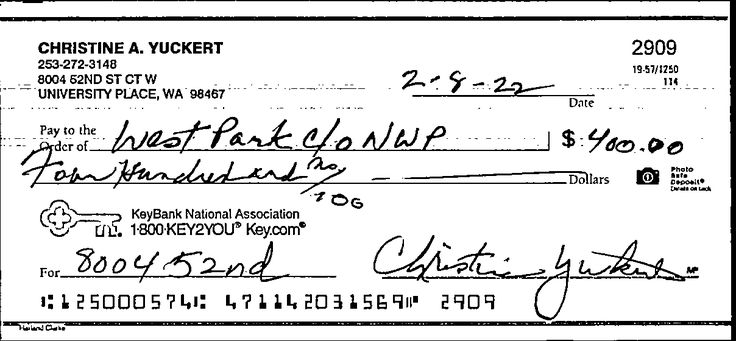 CHRISTINE A. YUCKERT
2909
253-272-3148
19-57/1250
8004 52ND ST CT W
114
UNIVERSITY PLACE, WA 98467
2-8-22
Date
Pay to the
Order of West Park c/o NWP $ 400.00
Four Hundred and no/100 Dollars
Photo
Safe
Deposit®
Details on back
KeyBank National Association
1-800-KEY2YOU® Key.com®
For 8004 52nd Christine Yuckert MP
⑆125000574⑆ 471142031569⑈ 2909
Harland Clarke